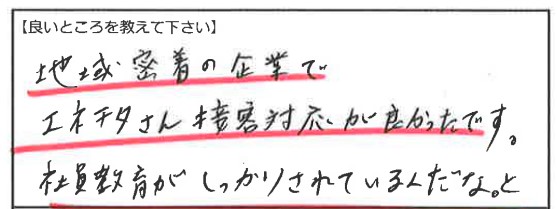 【良いところを教えて下さい】
地域密着の企業で
エネチタさん接客対応が良かったです。
社員教育がしっかりされているんだな。と